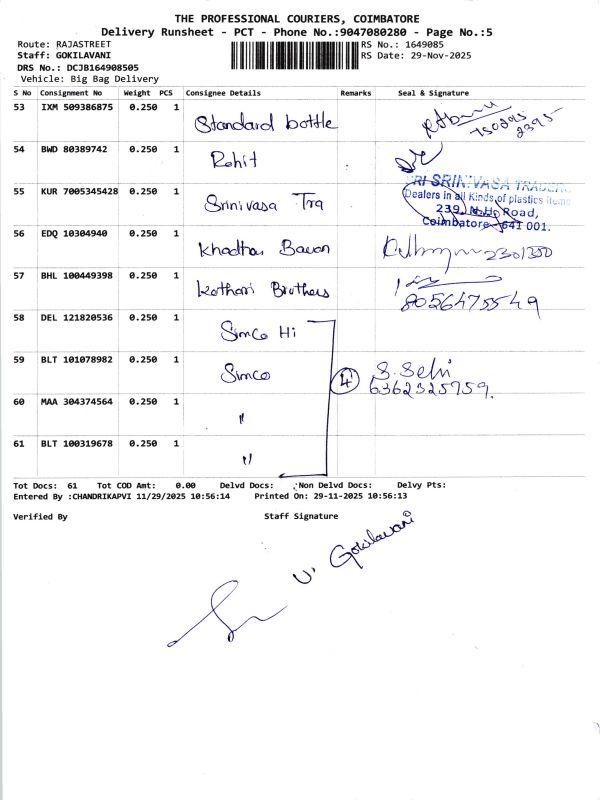 THE PROFESSIONAL COURIERS, COIMBATORE
Delivery Runsheet - PCT - Phone No.:9047080280 - Page No.:5
Route: RAJASTREET RS No.: 1649085
Staff: GOKILAVANI RS Date: 29-Nov-2025
DRS No.: DCJB164908505
Vehicle: Big Bag Delivery
S No Consignment No Weight PCS Consignee Details Remarks Seal & Signature
53 IXM 509386875 0.250 1 Standard bottle
54 BWD 80389742 0.250 1 Rohit
55 KUR 7005345428 0.250 1 Srinivasa Tra
SRI SRINIVASA TRADERS
Dealers in all Kinds of plastics items
239, N.H. Road,
Coimbatore - 641 001.
56 EDQ 10304940 0.250 1 Khadhar Bavan
57 BHL 100449398 0.250 1 Kothari Brothers
8056475549
58 DEL 121820536 1 Simco Hi
59 BLT 101078982 0.250 1 Simco 4 S. Selvi
6362325759.
60 MAA 304374564 0.250 1 "
61 BLT 100319678 0.250 1 "
Tot Docs: 61 Tot COD Amt: 0.00 Delvd Docs: Non Delvd Docs: Delvy Pts:
Entered By :CHANDRIKAPVI 11/29/2025 10:56:14 Printed On: 29-11-2025 10:56:13
Verified By Staff Signature
V. Gokilavani